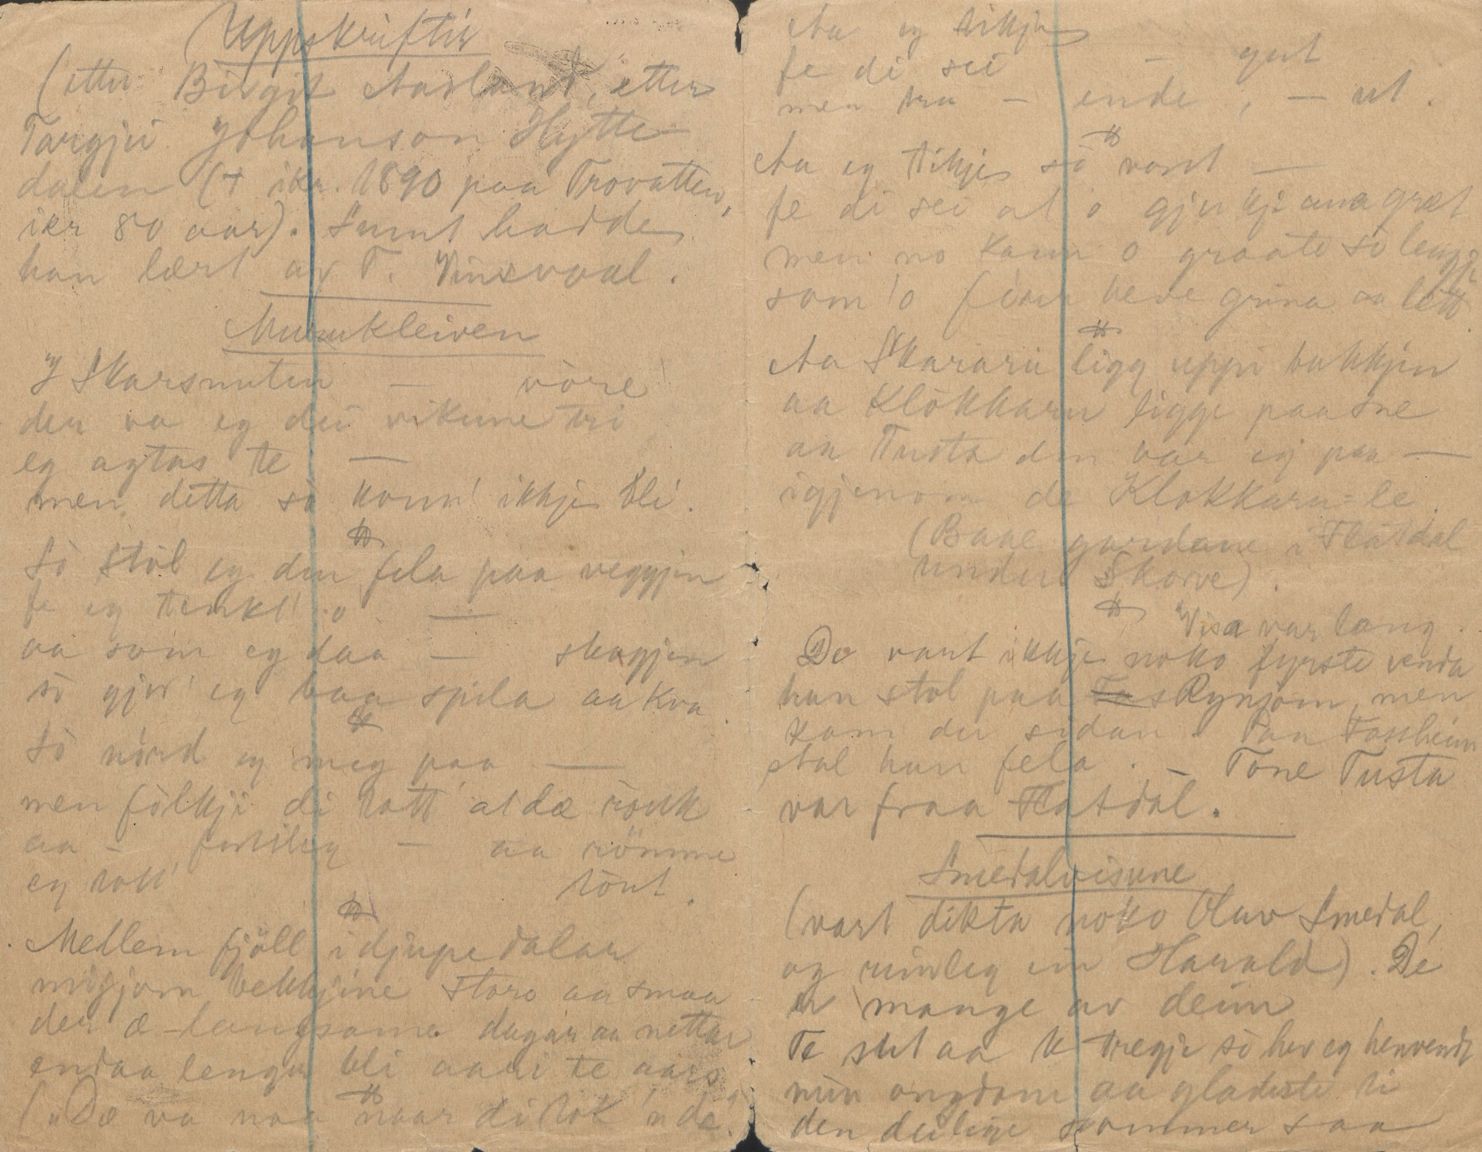 Uppskriftir
(etter Birgit Aasland, etter
Targjei Johanson Hytte-
dalen († ikr. 1890 paa Trovatten,
ikr 80 aar). Sumt hadde
han lært av T. Vinsvaal.
Munukleiven
I Skarsnuten — vòre
der va eg dei vikune tri
eg agtas te —
men detta sò konn' ikkje bli.
#
Sò stòl eg den fela paa veggjen
fe eg tenkt' o —
aa som eg daa — skagjen
sò gjer' eg baa spila aa kva
#
Sò nörd eg meg paa —
men fòlkji di tott' at dæ rauk
aa — fortileg — aa römme
eg tott' tònt.
#
Medlem fjöll i djupe dalar
migjom bekkjine store aa smaa
der æ langsame dagar aa nettar
endaa lengre bli aari te aars
#
("Dæ va naa naar di tok 'n da".
Aa eg tikje
fe di sei — gut
men tru — ende, — ut.
#
Aa eg tikje sò vondt —
fe di sei at o gjer kji ana græt
men no kann o graate sò lengje
som 'o firir heve grina aa lett
#
Aa Skararu ligg uppi bakkjen
aa Klokkaru ligge paa sne
aa Tusta den var eg paa —
igjenom de Klokkaru-le.
(Baae gardane i Flatdal
under Skorve).
#
Visa var lang.
Do vant ikkje noko fyrste venda
han stol paa Rynjom, men
kom der sidan. Paa Fossheim
stal han fela. — Tone Tusta
var fraa Flatdal.
Smedalvisune
(vart dikta noko Oluv Smedal,
og rimleg ein Harald). De
er mange av deim
Te sut aa te tregje sò hev eg henvendt
min ongdom aa gladeste ti
den deilige sommer saa